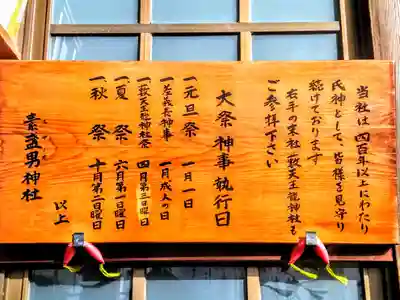 当社は四百年以上にわたり
氏神として、皆様を見守り
続けております
右手の末社一救天王龍神社も
ご参拝下さい
大祭神事執行日
一、元旦祭 一月一日
一、左義長神事 一月成人の日
一、救天王龍神社祭 四月第三日曜日
一、夏祭 六月第一日曜日
一、秋祭 十月第二日曜日
以上
素盞男神社